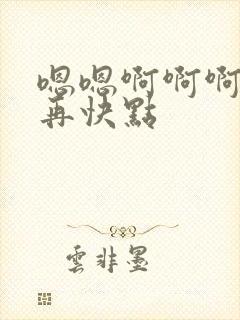 嗯嗯啊啊啊
再快點
雲非墨